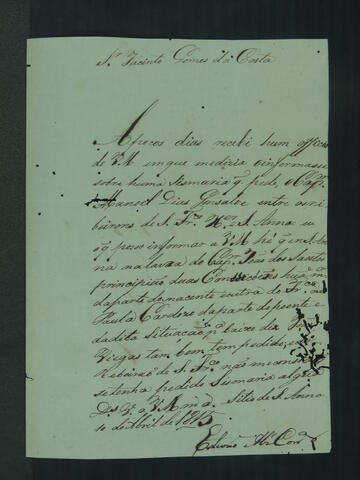 Sr. Jacinto Gomes da Costa
A pocos dias recebi hum officio
de VM em que me dizia o informasse
sobre huma Sismaria q. pede, o Cap.m
Manoel Dias Gonsalve entre os ri
beiroens de S. Fr.co e S. Anna eu
o q. poso informar a VM he q. en S. An
na na lavra do Cap.m João dos Santos
prinsipião duas
da parte do nacente outra de Fr.co
Paula Cordozo da parte do poente e
da dita situação p. baixo diz
Viegas tam bem tem pedido, e no
Ribeirão de S. Fr.co não me consta
se tenha pedido Sismaria alguã
D.s G. a VM m. a. Sitio de S. Anna
10 de Abril de 1815